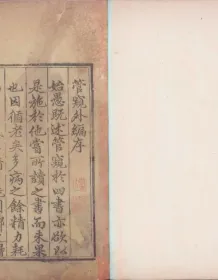 管窺外編序
始愚既述管窺於四書亦欲以
是施於他嘗所讀之書而未果
也因循老矣多病之餘精力耗